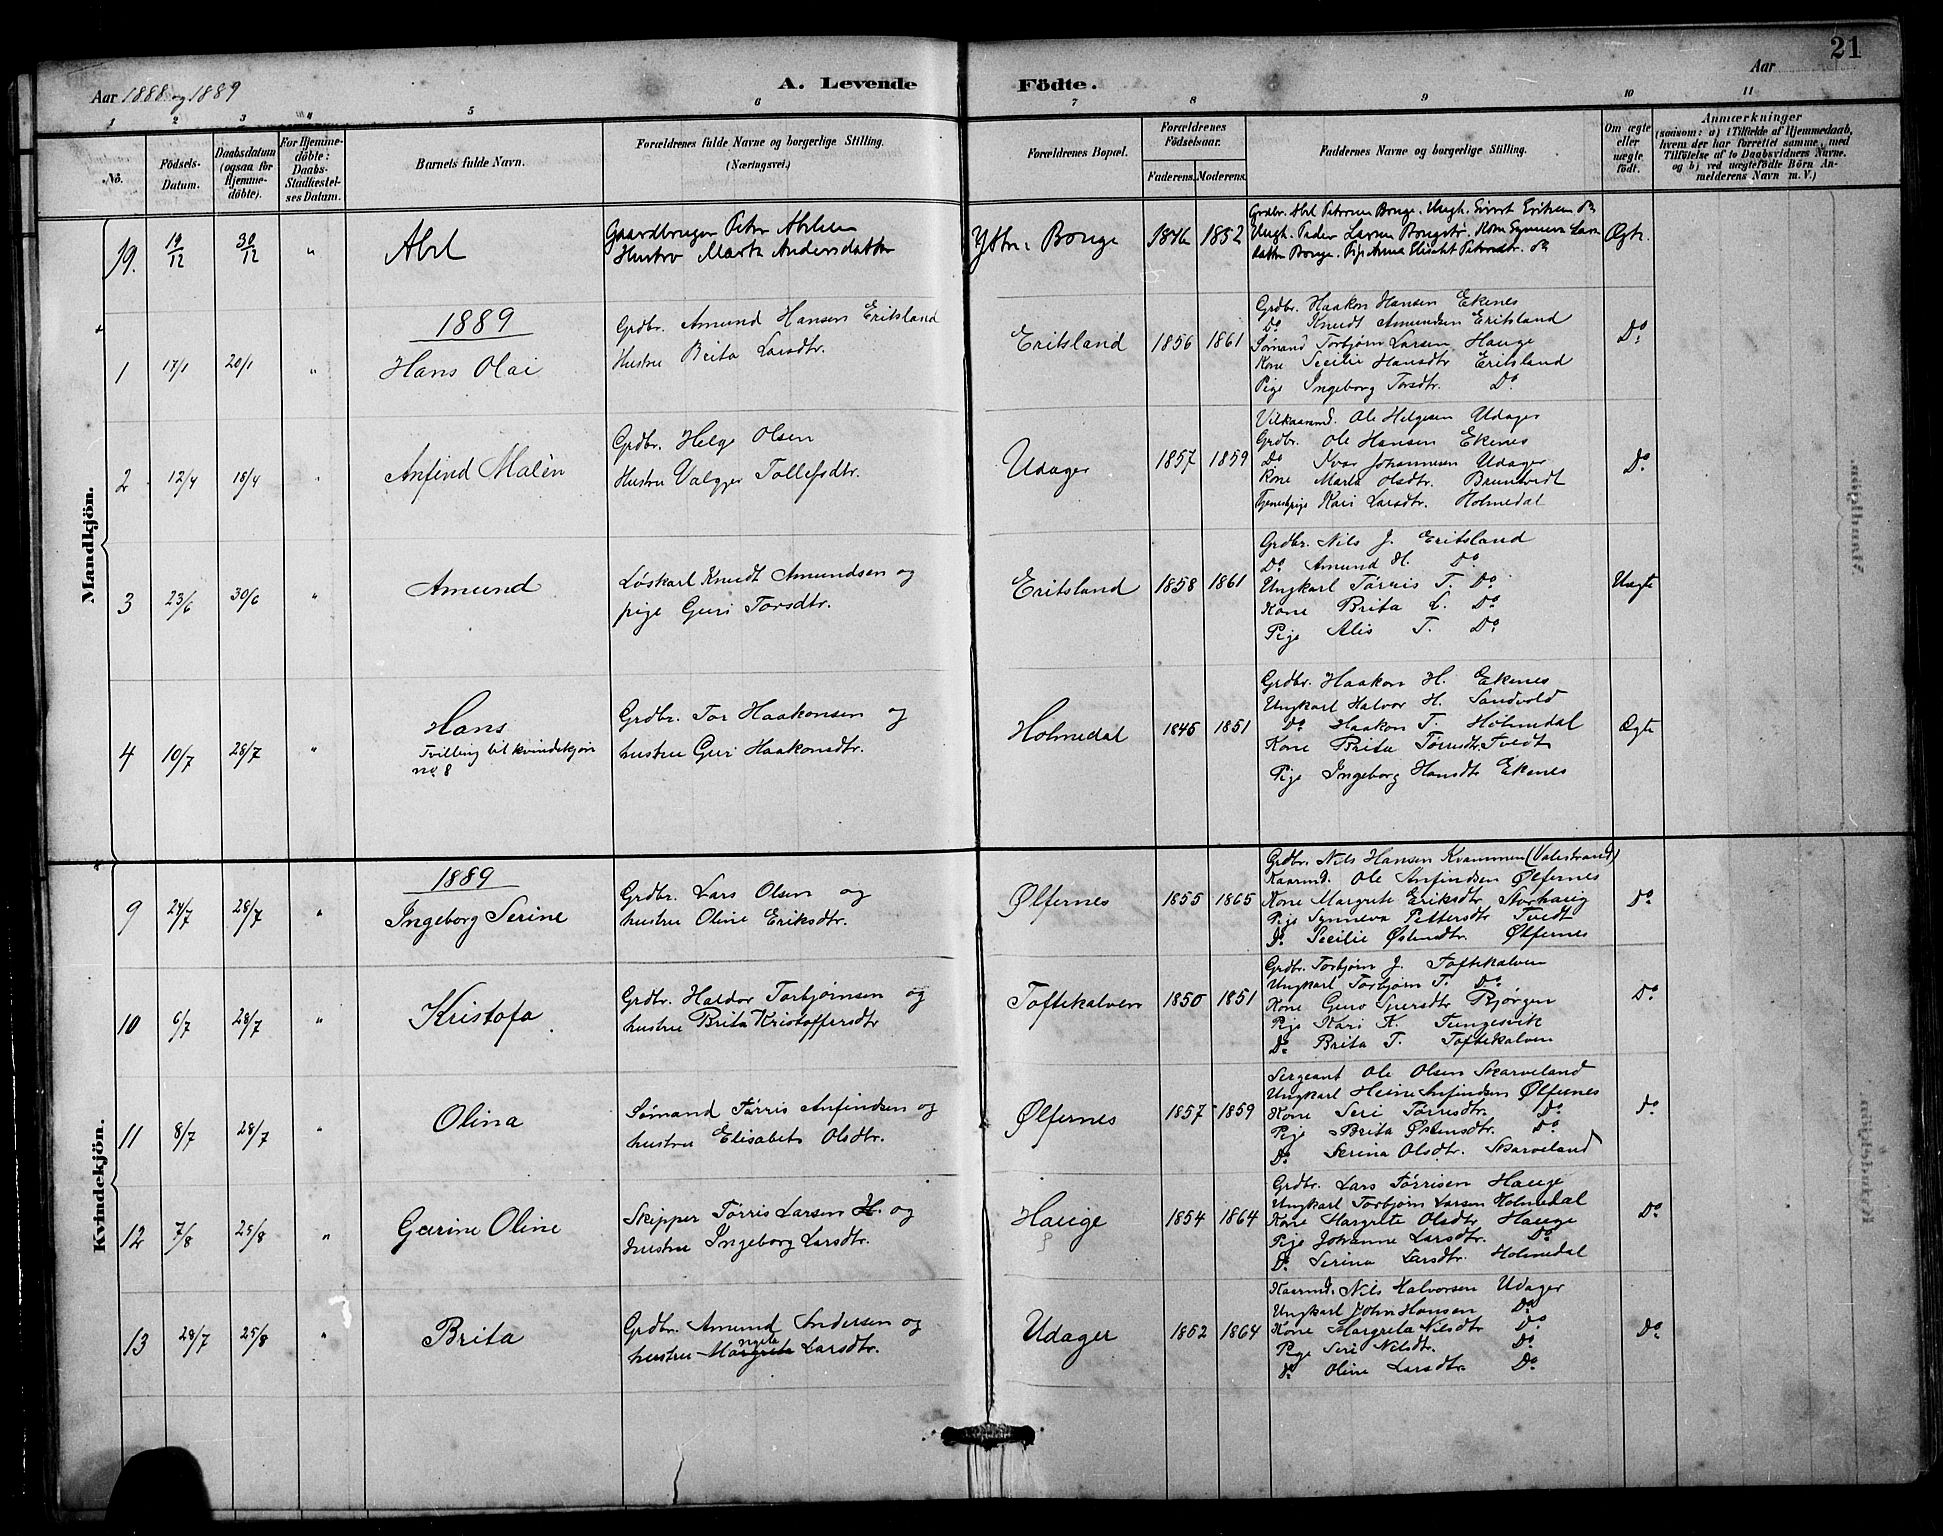 21
Aar 1888 og 1889
A. Levende Födte.
Aar
1 2 3 4 5 6 7 8 9 10 11
No.
Födsels-Datum.
Daabsdatum (ogsaa för Hjemmedöbte).
For Hjemmedöbte: Daabs-Stadfæstelses Datum.
Barnets fulde Navn.
Forældrenes fulde Navne og borgerlige Stilling.
(Næringsvei.)
Forældrenes Bopæl.
Forældrenes Födselsaar.
Faderens. Moderens.
Faddernes Navne og borgerlige Stilling.
Om ægte eller uægte födt.
Anmærkninger
(saasom: a) i Tilfælde af Hjemmedaab,
hvem der har forrettet samme, med
Tilföielse af to Daabsvidners Navne,
og b) ved uægtefödte Börn An-
melderens Navn m. V.)
Mandkjön.
19. 19/12 30/12 " Abel
Gaardbruger Peter Abelsen
Hustro Marta Andersdatter
Ytre Bouge 1846 1852
Grdbr. Abel Petersen Bouge. Ungk. Sivert Eriksen
Ungk. Peder Larsen
datter Bouge. Pige Anna Elisabet
Ægte.
1889
1 17/1 20/1 " Hans Olai
Grdbr. Amund Hansen Eritsland
Hustru Brita Larsdtr.
Eritsland 1856 1861
Grdbr. Haakon Hansen Ekenes
Do Knudt Amundsen Eritsland
Sømand Torbjørn Larsen Hauge
Kone Secilie Hansdtr Eritsland
Pige Ingeborg Torsdtr. Do
Do
2 12/4 18/4 " Anfind Malèn
Grdbr. Helge Olsen
Hustru Valgjer Tollefsdtr.
Udager 1857 1859
Vilkaarmd. Ole Helgesen Udager
Grdbr. Ole Hansen Ekenes
Do Ivar Johannesen Udager
Kone Marta Olsdtr. Brunsvedt
Tjenestepige Kari Larsdtr. Holmedal
Do
3 23/6 30/6 " Amund
Løskarl Knudt Amundsen og
pige Guri Torsdtr.
Eritsland 1858 1861
Grdbr. Nils J. Eritsland
Do Amund H. Do
Ungkarl Tørris T. Do
Kone Brita L. Do
Pige Alis T. Do
Uægte
4 10/7 28/7 " Hans
Tvilling til kvindekjøn
no. 8
Grdbr. Tor Haakonsen og
hustru Guri Haakonsdtr.
Holmedal 1845 1851
Grdbr. Haakon H. Ekenes
Ungkarl Halvor H. Sandvold
Do Haakon T. Holmedal
Kone Brita Tørrisdtr Tvedt
Pige Ingeborg Hansdtr Ekenes
Ægte
Kvindekjön.
1889
9 24/7 28/7 " Ingeborg Serine
Grdbr. Lars Olsen og
hustru Oline Eriksdtr.
Ølfernes 1855 1865
Grdbr. Nils Hansen Kvammen (Valestrand)
Kaarmd. Ole Anfindsen Ølfernes
Kone Margrete Eriksdtr Storhaug
Pige Synneva Pettersdtr Tvedt
Do Secilie Østensdtr. Ølfernes
Do
10 6/7 28/7 " Kristofa
Grdbr. Haldor Torbjørnsen og
hustru Brita Kristoffersdtr
Toftekalven 1850 1851
Grdbr. Torbjørn J. Toftekalven
Ungkarl Torbjørn T. Do
Kone Guro Sjursdtr Rjørgen
Pige Kari K. Tungesvik
Do Brita T. Toftekalven
Do
11 8/7 28/7 " Olina
Sømand Tørris Anfindsen og
hustru Elisabet Olsdtr.
Ølfernes 1857 1859
Sergeant Ole Olsen Skarveland
Ungkarl Heine Anfindsen Ølfernes
Kone Seri Tørrisdtr. Do
Pige Brita Østensdtr. Do
Do Serina Olsdtr. Skarveland
Do
12 7/8 25/8 " Gurine Oline
Skipper Tørris Larsen H. og
hustru Ingeborg Larsdtr.
Hauge 1854 1864
Grdbr. Lars Tørrisen Hauge
Ungkarl Torbjørn Larsen Holmedal
Kone Margrete Olsdtr Hauge
Pige Johanne Larsdtr. Do
Do Serina Larsdtr. Holmedal
Do
13 28/7 25/8 " Brita
Grdbr. Amund Andersen og
hustru Margrete Larsdtr.
Udager 1852 1864
Kaarmd. Nils Halvorsen Udager
Ungkarl John Hansen Do
Kone Margreta Nilsdtr Do
Pige Seri Nilsdtr. Do
Do Oline Larsdtr. Do
Do